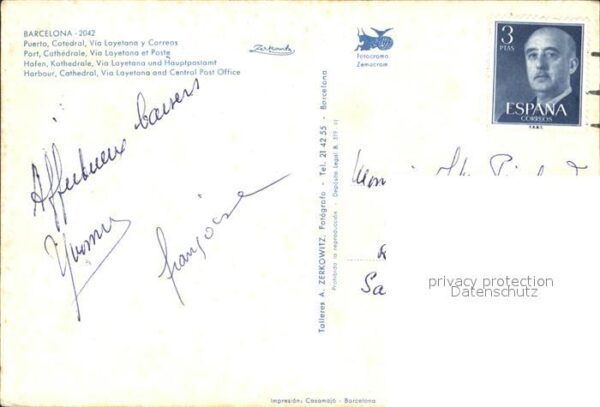 BARCELONA - 2042
Puerto, Catedral, Vía Layetana y Correos
Port, Cathédrale, Via Layetana et Poste
Hafen, Kathedrale, Via Layetana und Hauptpostamt
Harbour, Cathedral, Via Layetana and Central Post Office
Zerkowitz
Fotocromo
Zemacrom
3
PTAS
ESPAÑA
CORREOS
Affectueux baisers
Yvonne
françoise
Talleres A. ZERKOWITZ, Fotógrafo - Tel. 21 42 55 - Barcelona
Prohibida la reproducción - Depósito Legal B.
privacy protection
Datenschutz
Impresión: Casamajó - Barcelona